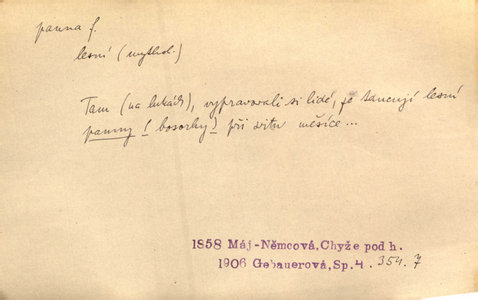 panna f.
lesní (mythol.)
Tam (na lukách), vypravovali si lidé, že tancují lesní
panny (bosorky) při svitu měsíce...
1858 Máj-Němcová, Chyže pod h.
1906 Gebauerová, Sp. 4. 354. 7